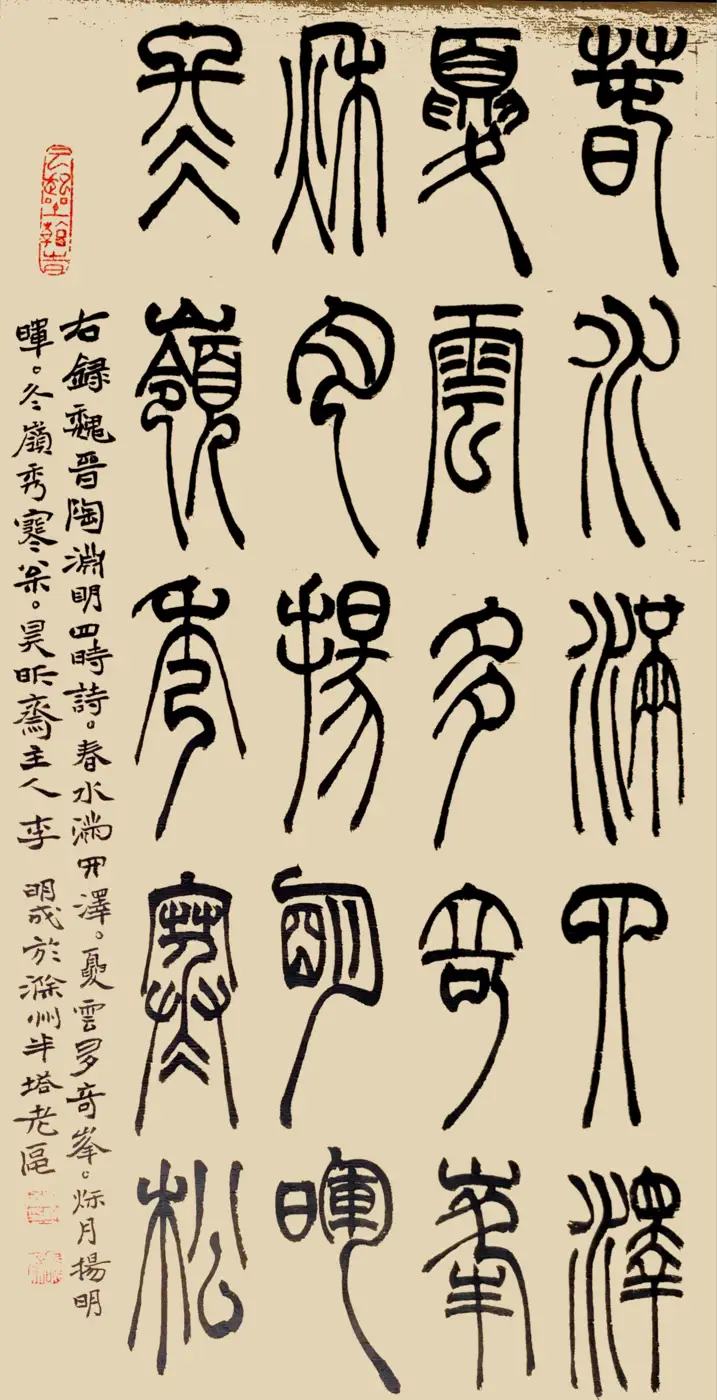 春水滿四澤
夏雲多奇峯
秋月揚明暉
冬嶺秀寒松
右錄魏晉陶淵明四時詩。春水滿四澤。夏雲多奇峯。秋月揚明
暉。冬嶺秀寒松。昊昕齋主人李明成於滁州半塔老區